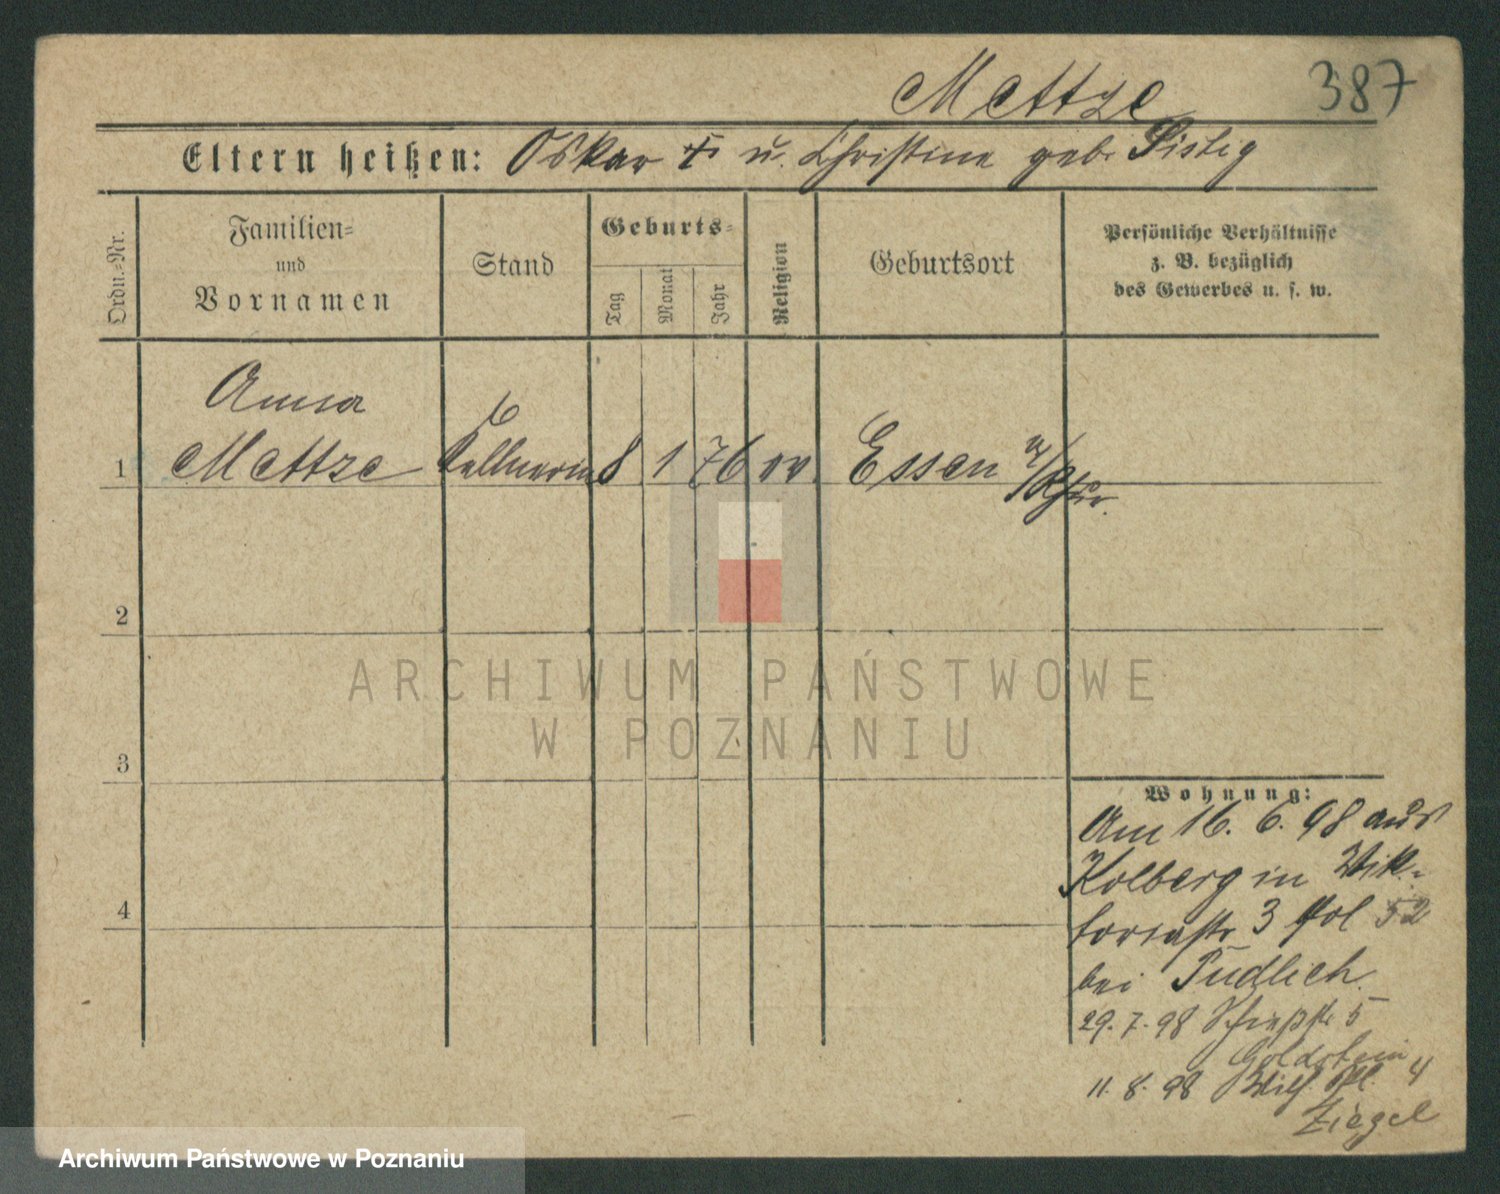 Mettze
387
Eltern heißen: Oskar † u. Christine geb. Sistig
Ordn.=Nr.
Familien=
und
Vornamen
Stand
Geburts=
Tag
Monat
Jahr
Religion
Geburtsort
Persönliche Verhältnisse
z. B. bezüglich
des Gewerbes u. s. w.
Anna
1 Mettze Kellnerin 8 1 76 ev. Essen a/Ruhr.
2
3
4
ARCHIWUM PAŃSTWOWE
W POZNANIU
Wohnung:
Am 16. 6. 98 aus
Kolberg in Vik-
toriastr 3 Pol 52
bei Tüdlich.
29. 7. 98 Schießstr 5
Goldstein
11. 8. 98 Wilh. Pl. 4
Ziegel
Archiwum Państwowe w Poznaniu